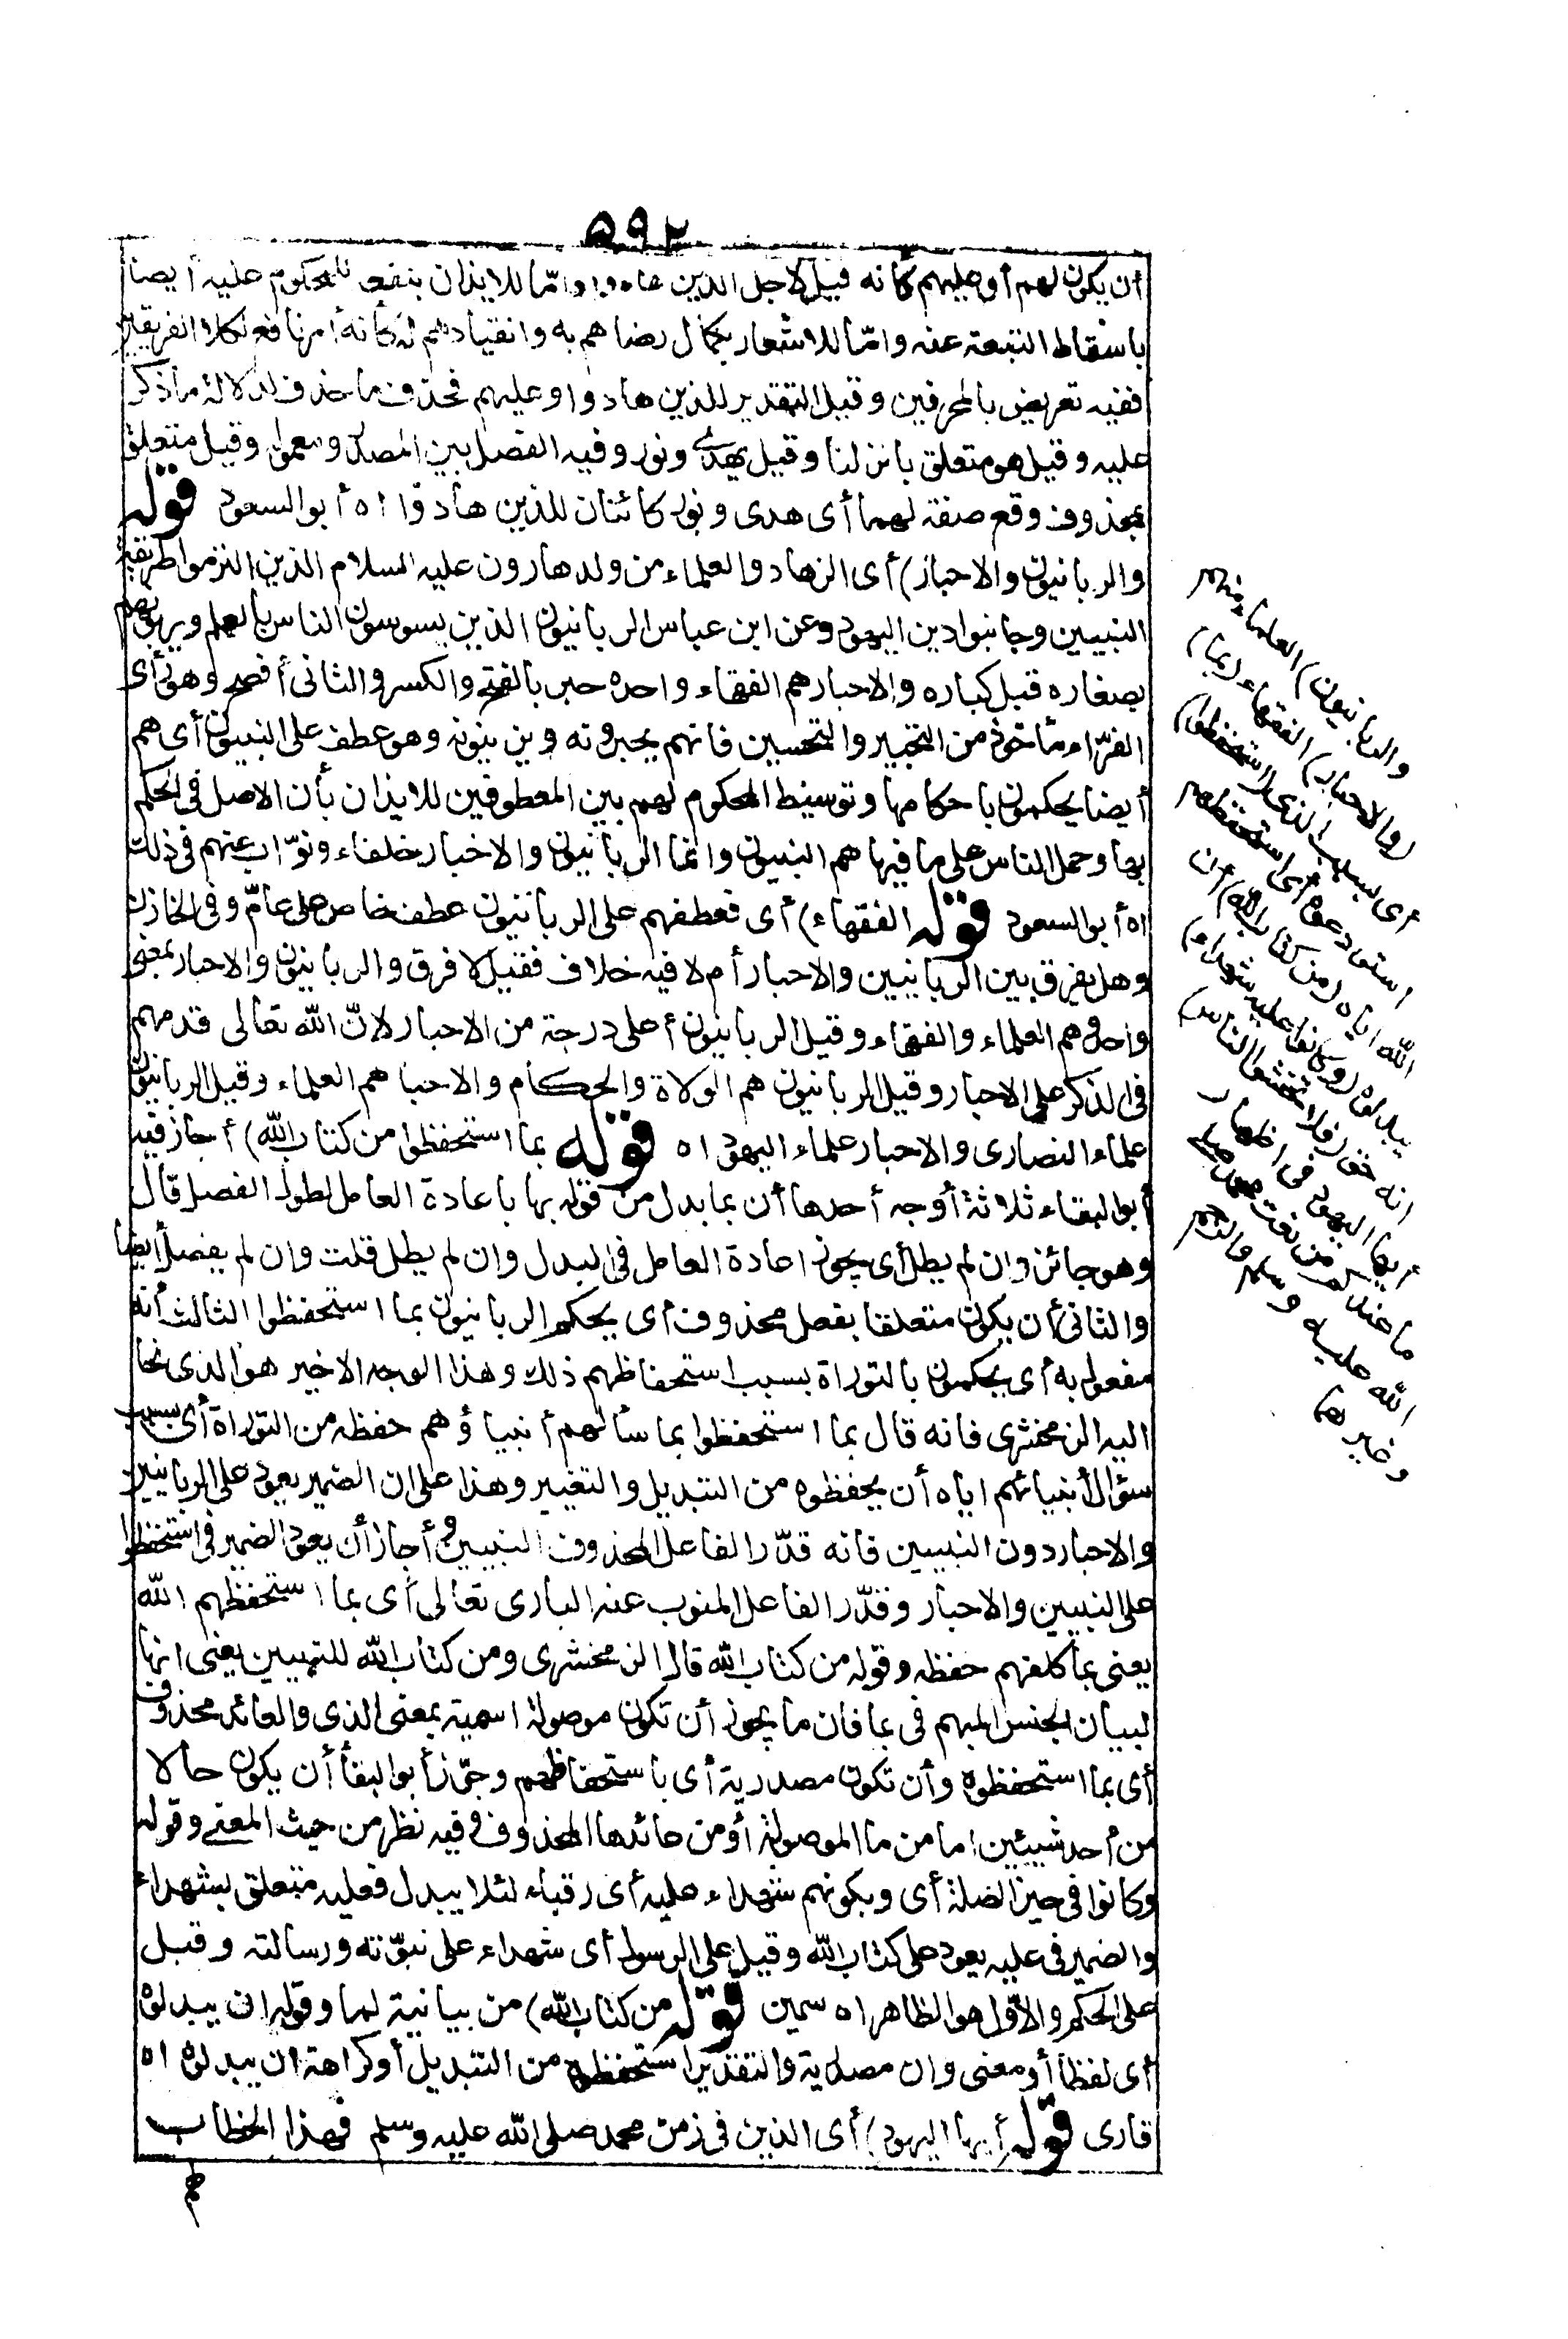 ٥٩٢
أن يكون لهم أو عليهم كأنه قيل لاجل الذين هادوا وامّا للايذان بنفعه للمحكوم عليه أيضا
باسقاط التبعة عنه وامّا للاشعار بكمال رضاهم به وانقيادهم له كأنه أمر نافع لكلا الفريقين
ففيه تعريض بالمحرفين وقيل التقدير للذين هادوا وعليهم فحذف ما حذف لدلالة ما ذكر
عليه وقيل هو متعلق بانزلنا وقيل بهدى ونور وفيه الفصل بين المصدر ومعموله وقيل متعلق
بمحذوف وقع صفة لهما أى هدى ونور كائنان للذين هادوا اه أبو السعود قوله
والربانيون والاحبار) أى الزهاد والعلماء من ولد هارون عليه السلام الذين التزموا طريقة
النبيين وجانبوا دين اليهود وعن ابن عباس الربانيون الذين يسوسون الناس بالعلم ويربونهم
بصغاره قبل كباره والاحبار هم الفقهاء واحده حبر بالفتح والكسر والثانى أفصح وهو رأى
الفرّاء مأخوذ من التحبير والتحسين فانهم يحبرونه ويزينونه وهو عطف على النبيون أى هم
أيضا يحكمون باحكامها وتوسيط المحكوم لهم بين المعطوفين للايذان بأن الاصل فى الحكم
بها وحمل الناس على ما فيها هم النبيون وانما الربانيون والاحبار خلفاء ونوّاب عنهم فى ذلك
اه أبو السعود قوله الفقهاء) أى فعطفهم على الربانيون عطف خاص على عامّ وفى الخازن
وهل يفرق بين الربانيين والاحبار أم لا فيه خلاف فقيل لا فرق والربانيون والاحبار بمعنى
واحد وهم العلماء والفقهاء وقيل الربانيون أعلى درجة من الاحبار لانّ الله تعالى قدمهم
فى الذكر على الاحبار وقيل الربانيون هم الولاة والحكام والاحبا هم العلماء وقيل الربانيون
علماء النصارى والاحبار علماء اليهود اه قوله بما استحفظوا من كتاب الله) أجاز فيه
أبو البقاء ثلاثة أوجه أحدها أن بما بدل من قوله بها باعادة العامل لطول الفصل قال
وهو جائز وان لم يطل أى يجوز اعادة العامل فى البدل وان لم يطل قلت وان لم يفصل أيضا
والثانى أن يكون متعلقا بفعل محذوف أى يحكم الربانيون بما استحفظوا الثالث أنه
مفعول به أى يحكمون بالتوراة بسبب استحفاظهم ذلك وهذا الوجه الاخير هو الذى نحا
اليه الزمخشرى فانه قال بما استحفظوا بما سألهم أنبياؤهم حفظه من التوراة أى بسبب
سؤال أنبيائهم اياه أن يحفظوه من التبديل والتغيير وهذا على ان الضمير يعود على الربانيين
والاحبار دون النبيين فانه قدّر الفاعل المحذوف النبيين وأجاز أن يعود الضمير فى استحفظوا
على النبيين والاحبار وقدّر الفاعل المنوب عنه البارى تعالى أى بما استحفظهم الله
يعنى بما كلفهم حفظه وقوله من كتاب الله قال الزمخشرى ومن كتاب الله للتبيين يعنى انها
لبيان الجنس المبهم فى بما فان ما يجوز أن تكون موصولة اسمية بمعنى الذى والعائد محذوف
أى بما استحفظوه وأن تكون مصدرية أى باستحفاظهم وجوّز أبو البقأ أن يكون حالا
من أحد شيئين اما من ما الموصولة أو من عائدها المحذوف وفيه نظر من حيث المعنى وقوله
وكانوا فى حيز الصلة أى وبكونهم شهداء عليه أى رقباء لئلا يبدل فعليه متعلق بشهداء
والضمير فى عليه يعود على كتاب الله وقيل على الرسول أى شهداء على نبوّته ورسالته وقيل
على الحكم والاوّل هو الظاهر اه سمين قوله من كتاب الله) من بيانية لما وقوله ان يبدلوه
أى لفظا أو معنى وان مصدرية والتقدير استحفظوه من التبديل أو كراهة ان يبدلوه اه
قارى قوله أيها اليهود) أى الذين فى زمن محمد صلى الله عليه وسلم فهذا الخطاب
والربانيون) العلماء منهم
(والاحبار) الفقهاء (بما)
أى بسبب الذى (استحفظوا)
استودعوه أى استحفظهم
الله اياه (من كتاب الله) أن
يبدلوه (وكانوا عليه شهداء)
انه حق (فلا تخشوا الناس)
أيها اليهود فى اظهار
ما عندكم من نعت محمد صلى
الله عليه وسلم والرجم
وغيرها